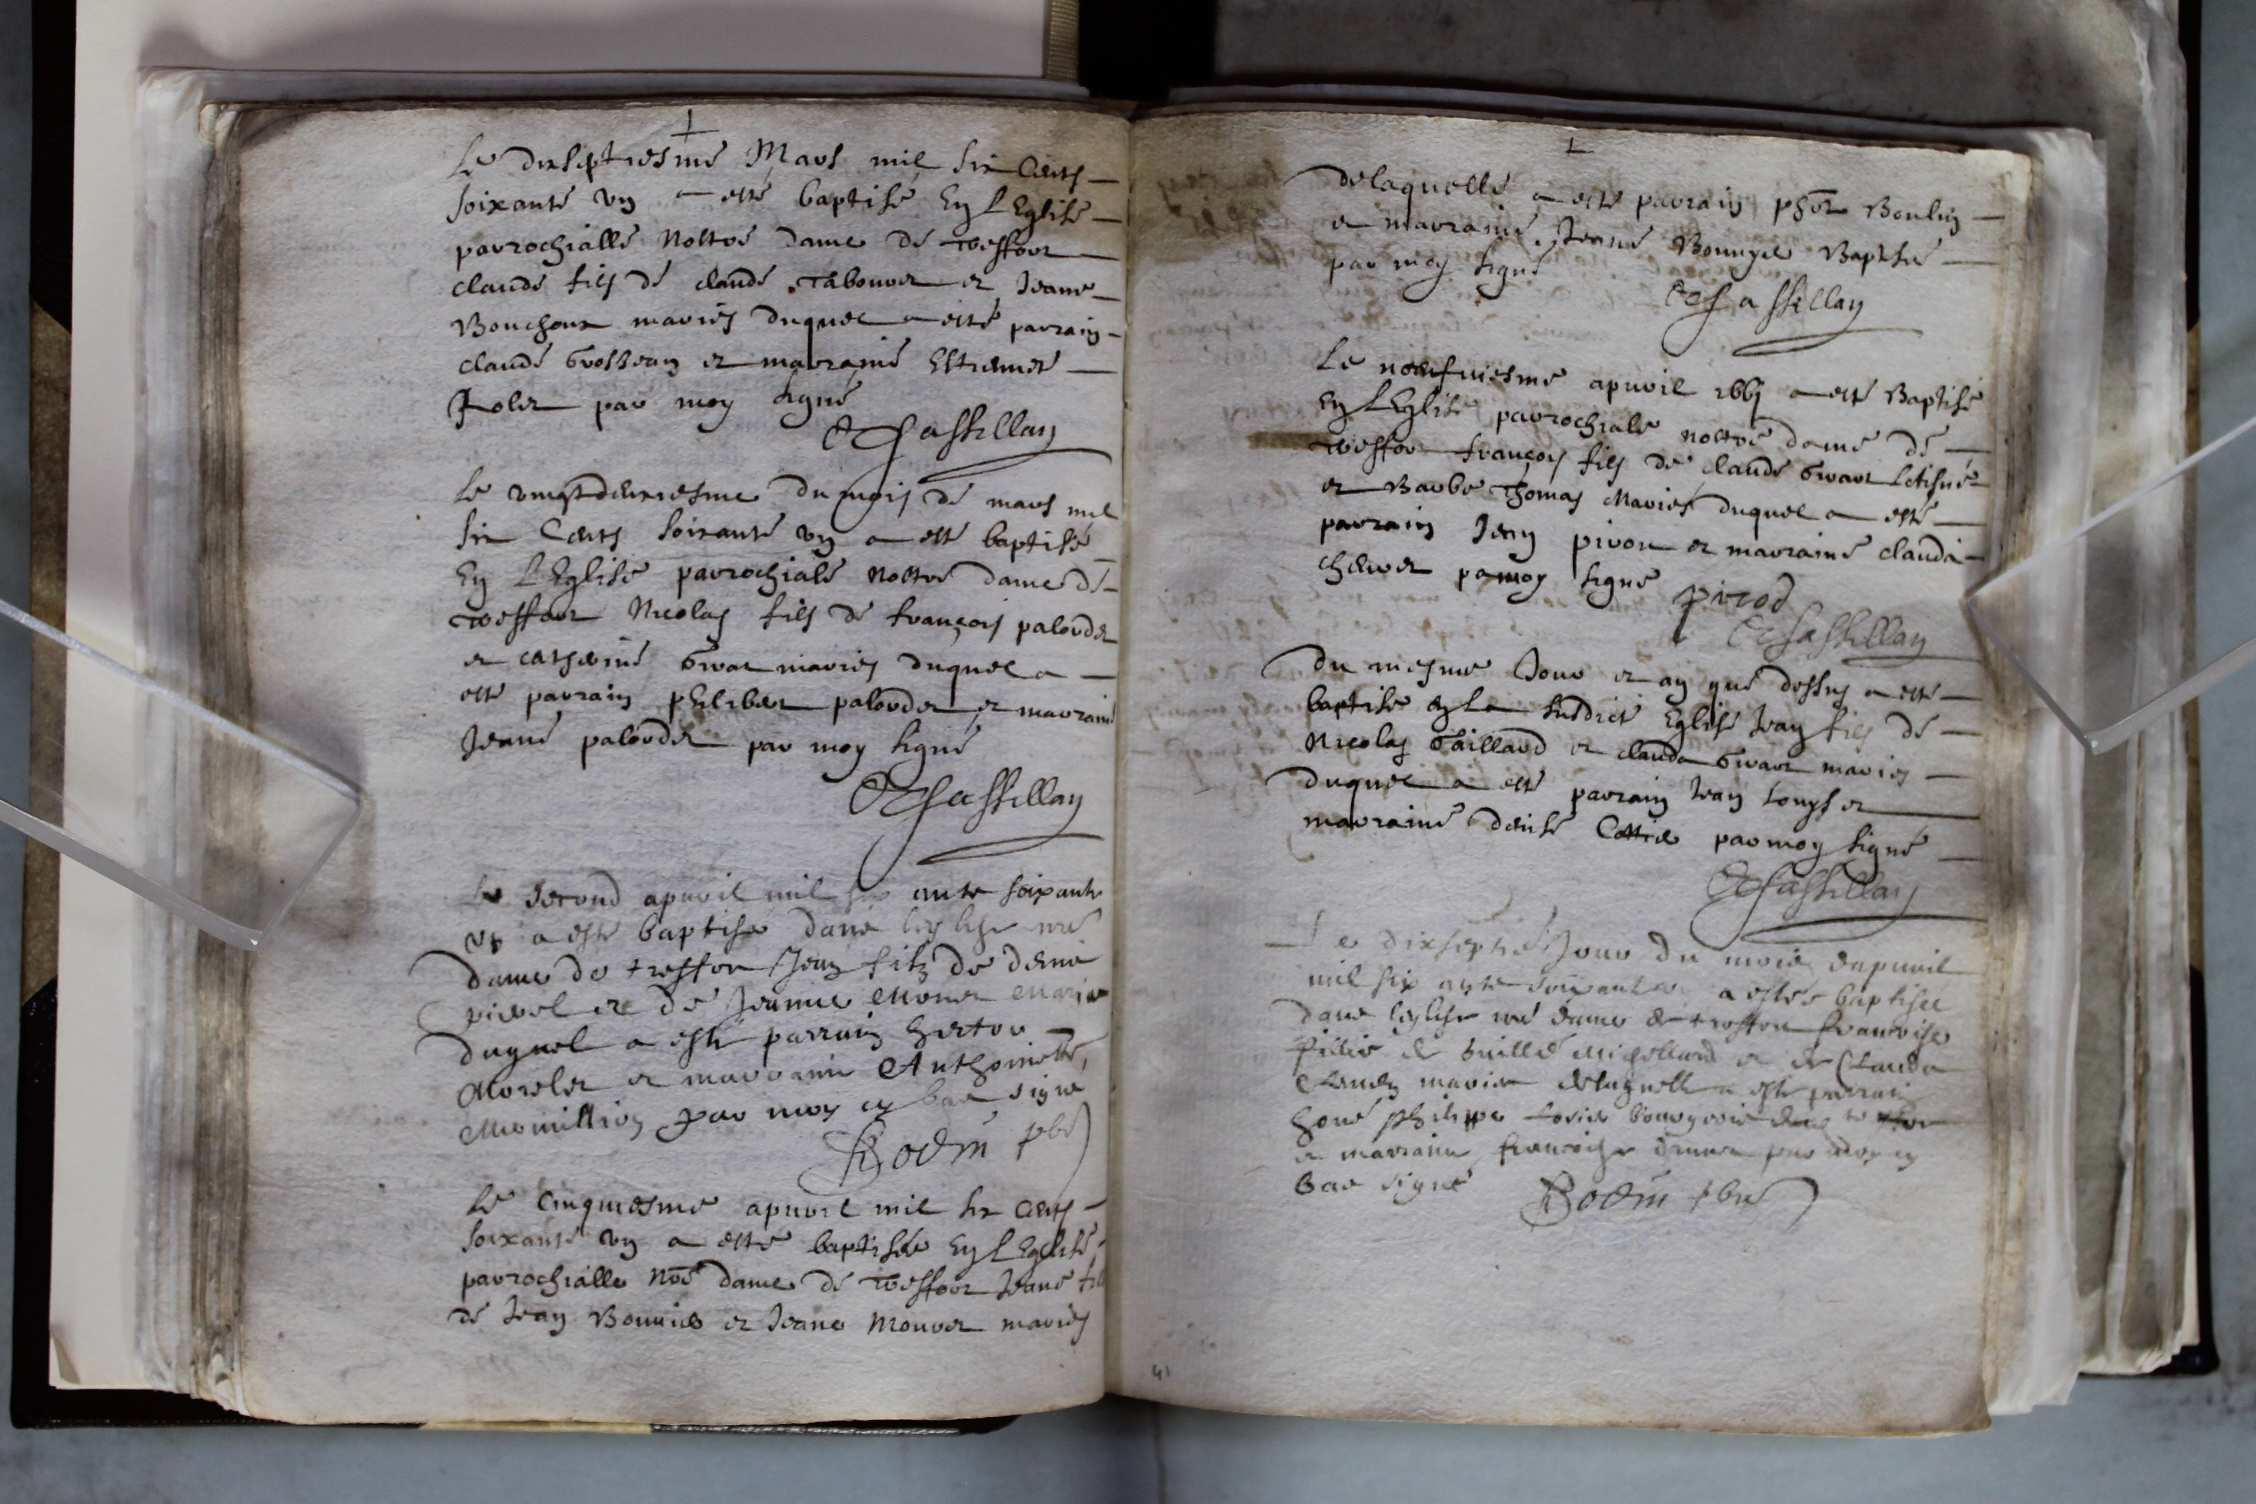 Le dixseptiesme Mars mil six Cents
soixante un a esté baptisé En L Eglise
parrochialle Nostre dame de tressort
claude filz de claude Tabouret et Jeane
Bouchoux mariés duquel a esté parrain
claude Grosjean et marraine Estiennette
Rolet par moy signé
Chassillan
Le vingtdeuxiesme du mois de mars mil
six Cents soixante un a esté baptisé
En L Eglise parrochiale Nostre dame de
tressort Nicolas filz de françois palordet
et catherine mariés duquel a
esté parrain philibert palordet et marraine
Jeane palordet par moy signé
Chassillan
Le second apuril mil six cents soixante
un a esté baptisé dans leglise nre
dame de tressort Jean filz de denis
et de Jeanne Monet Maries
duquel a esté parrain hector
Morelet et marraine Anthoinette
par moy cy bas signé
Bodin pbre
Le Cinquiesme apuril mil six Cents
soixante un a esté baptisée En L Eglise
parrochialle Nre dame de tressort Jeane fille
de Jean Bouvier et Jeane Monret mariés
delaquelle a esté parrain phbert Boulin
et marraine Jeane Baptisée
par moy signé
Chassillan
Le noeufuiesme apuril 1661 a esté Baptisé
En L Eglise parrochiale nostre dame de
tressort françois filz de claude
et Barbe Thomas Mariés duquel a esté
parrain Jean pirou et marraine clauda
par moy signé pirod
Chassillan
Du mesme Jour et an que dessus a esté
baptisé En La susdicte Eglise Jean filz de
Nicolas Gaillard et clauda mariés
duquel a esté parrain Jean et
marraine denise par moy signé
Chassillan
Le dixseptie Jour du mois dapuril
mil six cents soixante un a estée baptisée
dans leglise nre dame de tressort francoise
fillie de Michellard et de Clauda
maries delaquelle a esté parrain
honé Philippe bourgeois de tressort
et marraine francoise par moy cy
bas signé Bodin pbre
41